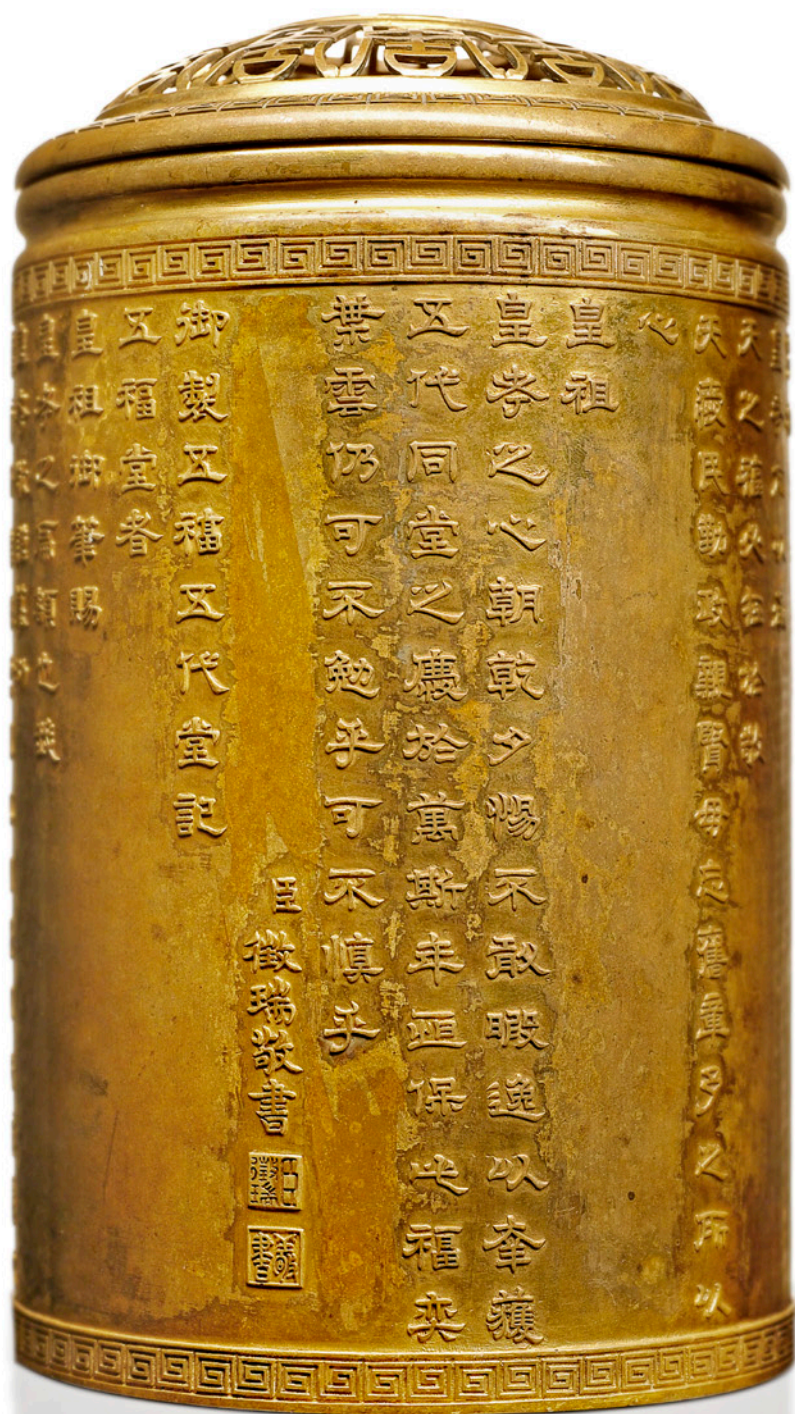 天之必在於敬
天愛民勤政親賢毋忘舊章予之所以
心
皇祖
皇考之心朝乾夕惕不敢暇逸以幸獲
五代同堂之慶於萬斯年恒保此福奕
葉雲仍可不勉乎可不慎乎
臣徵瑞敬書
臣徵瑞
敬書
御製五福五代堂記
五福堂者
皇祖御筆賜
皇考之扁額也我